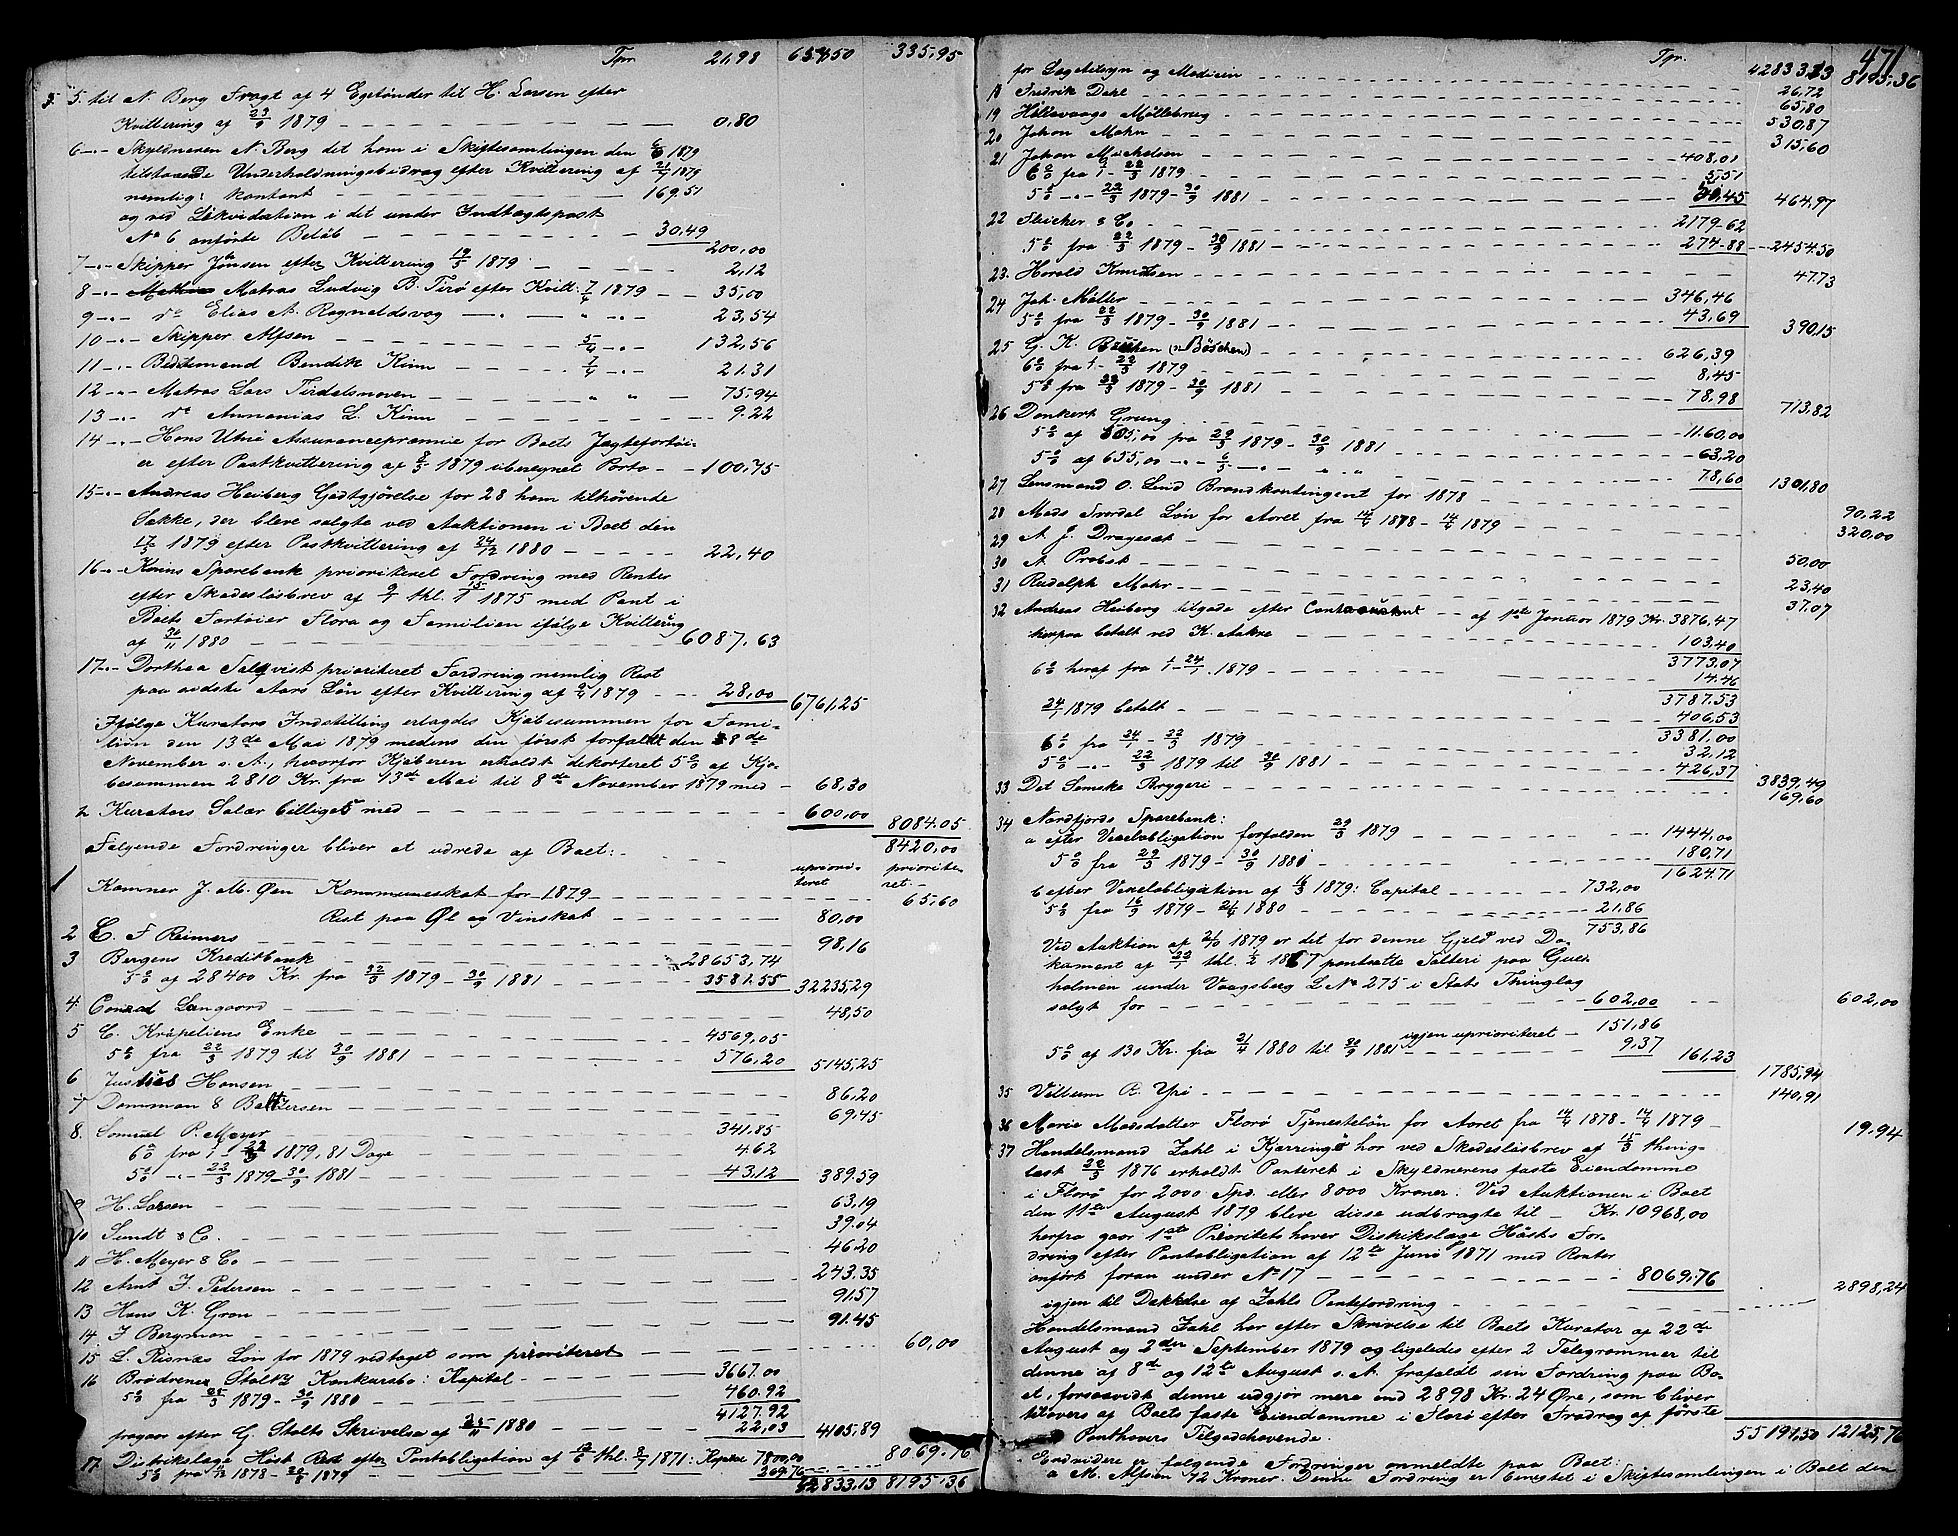 Tpr. 21,98 654,50 335,95
5. 5. til N. Berg Fragt af 4 Egetønder til H. Larsen efter
Kvittering af 23/9 1879 0,80
6 -"- Skyldneren N. Berg det ham i Skiftesamlingen den 6/3 1879
tilstaaede Underholdningsbidrag efter Kvittering af 21/4 1879
nemlig: kontant 169,51
og ved Likvidation i det under Indtægtspost
No 6 anførte Beløb 30,49 200,00
7 -"- Skipper Jønsen efter Kvittering 19/5 1879 2,12
8 -"- Matros Ludvig B. Tirø efter Kvitt: 7/4 1879 35,00
9 -"- do Elias A. Rognaldsvog -"- " -"- 23,54
10 -"- Skipper Alfsen 5/4 -"- 132,56
11 -"- Bedstemand Bendik Kinn 7/4 -"- 21.31
12 -"- Matros Lars Tirdalsnoven " " 75,94
13 -"- do Annanias L. Kinn 9.22
14 -"- Hans Utne Assurancepræmie for Boets Jagtefartøi-
er efter Postkvittering af 8/5 1879 iberegnet Porto 100,75
15 -"- Andreas Heiberg Godtgjørelse for 28 ham tilhørende
Sække, der bleve solgte ved Auktionen i Boet den
17/5 1879 efter Postkvittering af 24/12 1880 22,40
16 -"- Kinns Sparebank prioriteret Fordring med Renter
efter Skadesløsbrev af 9/7 thl. 15/7 1875 med Pant i
Boets Fartøier Flora og Familien ifølge Kvittering
af 30/11 1880 6087,63
17 -"- Dorthea Salqvist prioriteret Fordring nemlig Rest
paa avdste Aars Løn efter Kvittering af 9/4 1879 28,00 6761.25
Ifølge Kurators Indstilling erlagdes Kjøbesummen for Fami-
lien den 13de Mai 1879 medens den først forfaldt den 8de
November s. A., hvorfor Kjøberen erholdt dekorteret 5 % af Kjø-
besummen 2810 Kr. fra 13de Mai til 8de November 1879 med 68,30
2 Kurators Salær billiget med 600,00 8084.05
8420,00
Følgende Fordringer bliver at udrede af Boet:
upriori-teret prioriteret.
1 Kæmner J. M. Øen Kommuneskat for 1879 65,60
Rest paa Øl og Vinskat 80,00
2 C. F Reimers 98,16
3 Bergens Kreditbank 28653,74
5 % af 28400 Kr. fra 22/3 1879 - 30/9 1881 3581.55 32235,29
4. Conrad Langaard 48,50
5 C. Krøpeliens Enke 4569,05
5 % fra 22/3 1879 til 30/9 1881 576,20 5145,25
6 Justus Hansen 86,20
7 Domman & Battersen 69,45
8. Samuel P. Meyer 341,85
6 % fra 1/1 - 22/3 1879, 81 Dage 4.62
5 % -"- 22/3 1879 - 30/9 1881 43,12 389.59
9 H. Larsen 63,19
10 Sundt & Co. 39.04
11 H. Meyer & Co 46.20
12 Arnt J. Pedersen 243.35
13 Hans K. Gran 91.57
14 J Bergman 91.45
15 L. Risnæs Løn for 1879 vedtaget som prioriteret 60,00
16 Brødrene Stoltz Konkursbo: Kapital 3667.00
5 % fra 25/3 1879 - 30/9 1880 460.92
4127.92
fragaar efter G. Stoltz Skrivelse af 25/11 1880 22,03 4105,89
17 Distrikslæge Høst Rest efter Pantobligation af 12/6 thl. 8/7 1871: Kapital 7800,00
5 % fra 1878 - 22/3 1879 269.76 8069.76
42833.13 8195.36
471
Tpr. 42833.13 8195.36
for Lægetilsyn og Medicin 26,72
18 Fredrik Dahl 65,80
19 Hillevaags Møllebrug 530,87
20 Johan Mohn 315,60
21 Johan Michelsen 408,01
6 % fra 1/1 - 22/3 1879 5,51
5 % -"- 22/3 1879 - 30/9 1881 50,45 464,97
22 Fleicher & Co 2179,62
5 % fra 22/3 1879 - 30/9 1881 274.88 2454.50
23. Harald Knudtsen 47.73
24 Joh. Møller 346,46
5 % fra 22/3 1879 - 30/9 1881 43,69 390,15
25 G. K. Büchen (: Böschen) 626,39
6 % fra 1/1 - 22/3 1879 8,45
5 % fra 22/3 1879 - 30/9 1881 78,98 713,82
26 Donkert Grung 1160,00
5 % af 505,00 fra 29/3 1879 - 30/9 1881 63,20
5 % af 655,00 -"- 6/5 -"- " " 78,60 1301,80
27 Lensmand O. Lind Brandkontingent for 1878 90,22
28 Mads Svordal Løn for Aaret fra 14/4 1878 - 14/4 1879 320,00
29 A. J. Dragesæt 50,00
30 A. Probst 23,40
31 Rudolph Mohr 37.07
32 Andreas Heiberg tilgode efter Contracourant af 1ste Januar 1879 Kr. 3876,47
herpaa betalt ved K. Aakre 103,40
3773.07
6 % heraf fra 1/1 - 24/1 1879 14.46
3787.53
24/1 1879 betalt 406,53
3381.00
6 % fra 24/1 - 22/3 1879 32,12
5 % -"- 22/3 1879 til 30/9 1881 426,37 3839,49
33 Det Semske Bryggeri 169,60
34 Nordfjords Sparebank:
a efter Vexelobligation forfalden 29/3 1879 1444,00
5 % fra 29/3 1879 - 30/9 1880 180,71
1624.71
b efter Vexelobligation af 16/3 1879: Capital 732,00
5 % fra 16/9 1879 - 21/4 1880 21,86
753,86
Ved Auktion af 21/10 1879 er det for denne Gjeld ved Do-
kument af 22/1 thl. 1/2 1867 pantsatte Salteri paa Guld-
holmen under Vaagsberg L No 275 i Stats Thinglag
solgt for 602,00 602,00
igjen uprioriteret 151,86
5 % af 130 Kr. fra 21/4 1880 til 30/9 1881 9,37 161,23
1785,94
35 Villum R. Yri 140,91
36 Marie Madsdatter Florø Tjenesteløn for Aaret fra 14/4 1878 - 14/4 1879 19.94
37 Handelsmand Zahl i Kjærringø har ved Skadesløsbrev af 15/3 thing-
læst 22/3 1876 erholdt Panteret i Skyldnerens faste Eiendomme
i Florø for 2000 Spd. eller 8000 Kroner. Ved Auktionen i Boet
den 11te August 1879 bleve disse udbragte til Kr. 10968,00
herfra gaar 1ste Prioritetshaver Distrikslæge Høsts For-
dring efter Pantobligation af 12te Juni 1871 med Renter
anført foran under No 17 8069,76
igjen til Dækkelse af Zahls Pantefordring 2898,24
Handelsmand Zahl har efter Skrivelse til Boets Kurator af 22de
August og 2den September 1879 og ligeledes efter 2 Telegrammer til
denne af 8de og 12te August s. A. frafaldt sin Fordring paa Bo-
et, forsaavidt denne udgjør mere end 2898 Kr. 24 Øre, som bliver
tilovers af Boets faste Eiendomme i Florø efter Fradrag af første
Panthavers Tilgodehavende. 55191,50 12125,76
Endvidere er følgende Fordringer anmeldte paa Boet:
a M. Alfsen 42 Kroner. Denne Fordring er benegtet i Skiftesamlingen i Boet den